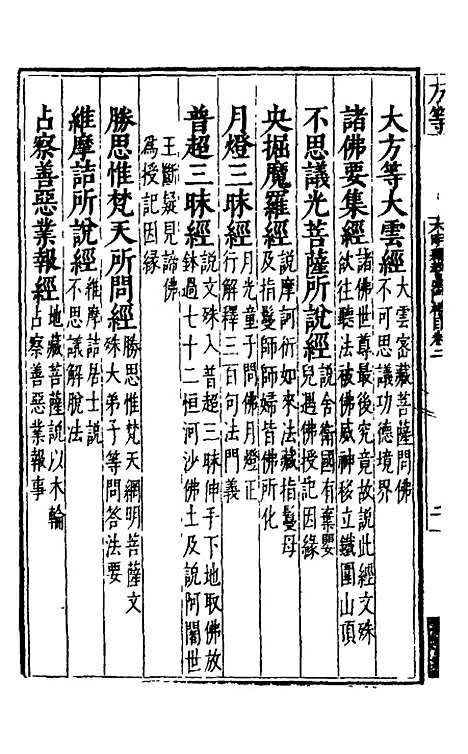 方等
大方等大雲經 大雲密藏菩薩問佛
不可思議功德境界
諸佛要集經 諸佛世尊最後究竟故說此經文殊
欲往聽法被佛威神移立鐵圍山頂
不思議光菩薩所說經 說舍衛國有棄嬰
兒遇佛授記因緣
央掘魔羅經 說摩訶衍如來法藏指鬘母
及指鬘師師婦皆佛所化
月燈三昧經 月光童子問佛月燈正
行解釋三百句法門義
普超三昧經 說文殊入普超三昧伸手下地取佛放
鉢過七十二恒河沙佛土及說阿闍世
王斷疑見諦佛
爲授記因緣
勝思惟梵天所問經 勝思惟梵天網明菩薩文
殊大弟子等問答法要
維摩詰所說經 維摩詰居士說
不思議解脫法
占察善惡業報經 地藏菩薩說以木輪
占察善惡業報事